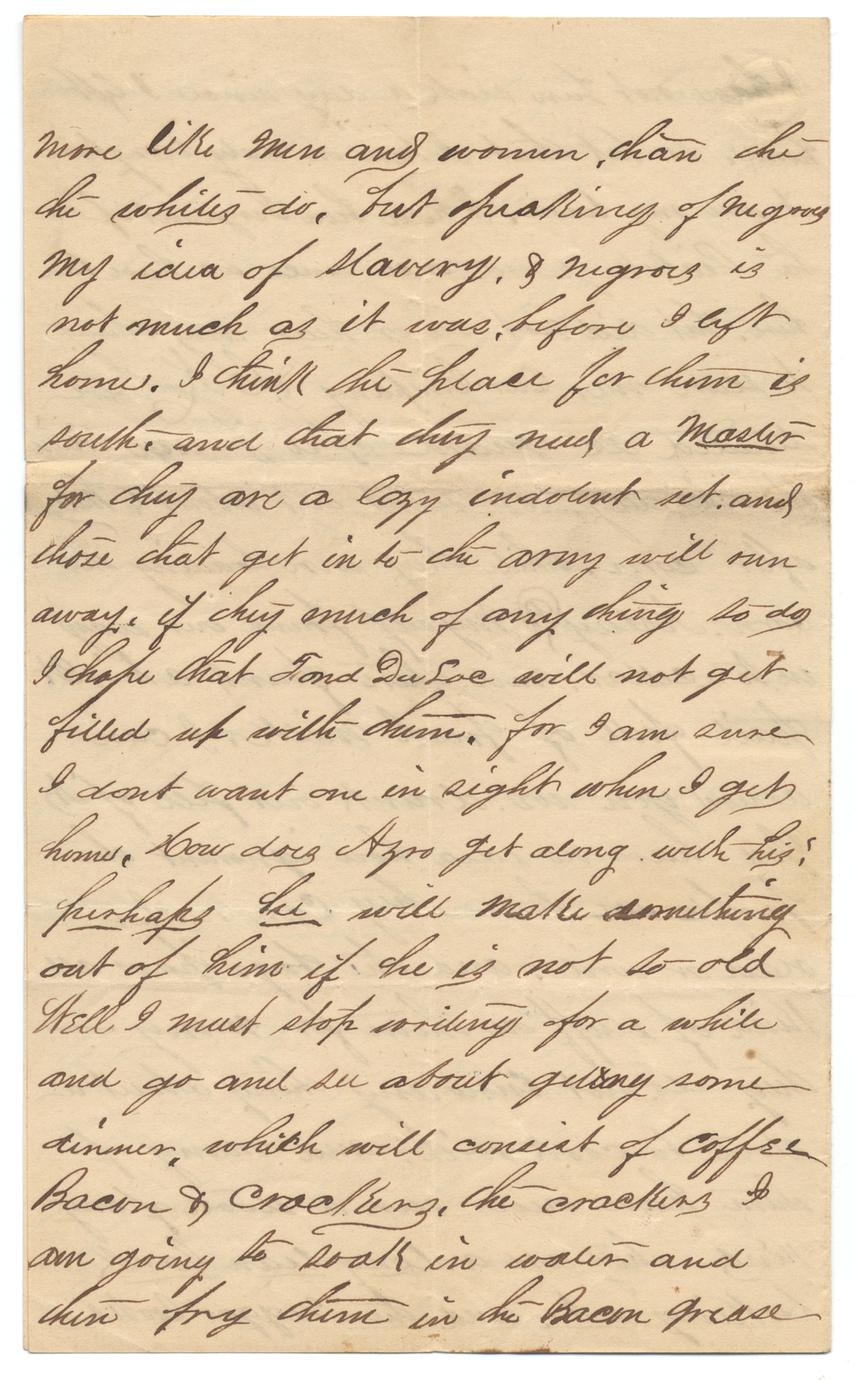 more like men and women, than the
the whites do, but speaking of negroes
My idea of slavery, & negroes is
not much as it was, before I left
home. I think the place for them is
south, and that they need a Master
for they are a lazy indolent set. and
those that get in to the army will run
away, if they much of any thing to do
I hope that Fond Du Lac will not get
filled up with them. for I am sure
I dont want one in sight when I get
home. How does Azro get along with his;
perhaps he will make something
out of him if he is not to old
Well I must stop writing for a while
and go and see about getting some
dinner, which will consist of coffee
Bacon & Crackers, the crackers I
am going to soak in water and
then fry them in the Bacon grease